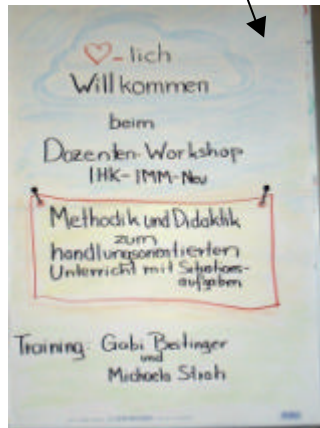 ♡-lich
Willkommen
beim
Dozenten-Workshop
IHK-IMM-Neu
Methodik und Didaktik
zum
handlungsorientierten
Unterricht mit Situations-
aufgaben
Training: Gabi
und
Michaela